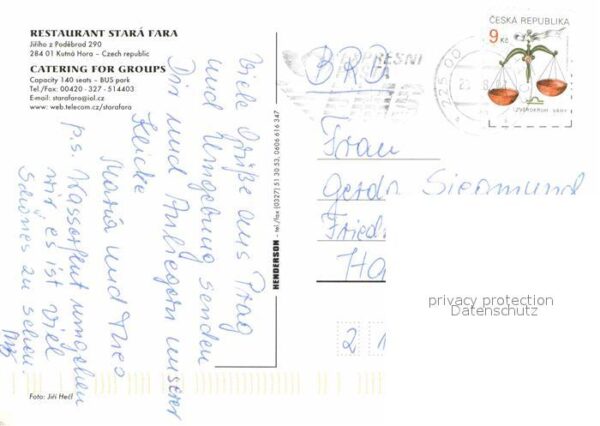 RESTAURANT STARÁ FARA
Jiřího z Poděbrad 290
284 01 Kutná Hora – Czech republic
CATERING FOR GROUPS
Capacity 140 seats – BUS park
Tel./Fax: 00420 - 327 - 514403
E-mail: starafara@iol.cz
www: web.telecom.cz/starafara
Viele Grüße aus Prag
und Umgebung senden
Dir und unserer
Maria und Theo
P.S. umgeben
wir es ist viel
Schönes zu sehen.
Foto: Jiří Heřl
HENDERSON - tel./fax (0327) 51 30 53, 0606 616 347
B.R.D.
225 00
ČESKÁ REPUBLIKA
9 Kč
ZVĚROKRUH VÁHY
Frau
Gerda Siegmund
Fried
Ha
2 1
privacy protection
Datenschutz